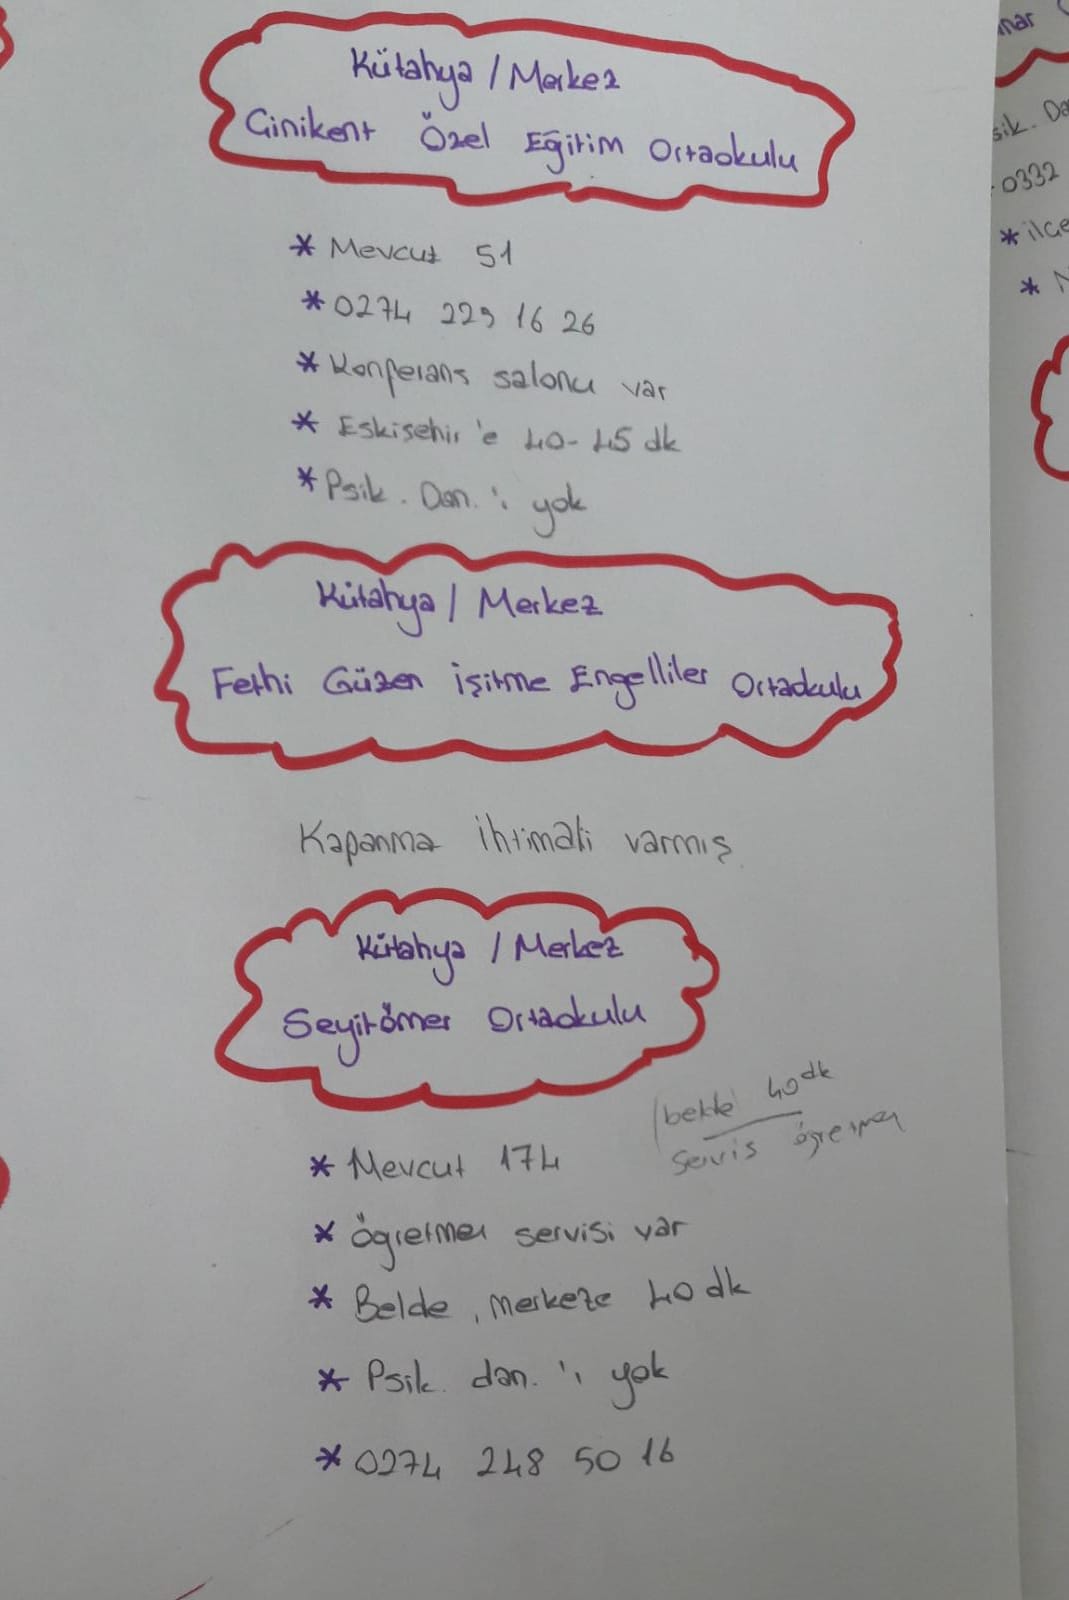 Kütahya / Merkez
Çinikent Özel Eğitim Ortaokulu
* Mevcut 51
* 0274 229 16 26
* Konferans salonu var
* Eskişehir'e 40-45 dk
* Psik. Dan.'ı yok
Kütahya / Merkez
Fethi Güzen İşitme Engelliler Ortaokulu
Kapanma ihtimali varmış
Kütahya / Merkez
Seyitömer Ortaokulu
belde 40 dk
servis öğretmen
* Mevcut 174
* Öğretmen servisi var
* Belde, merkeze 40 dk
* Psik. dan.'ı yok
* 0274 248 50 16
0332
* ilçe